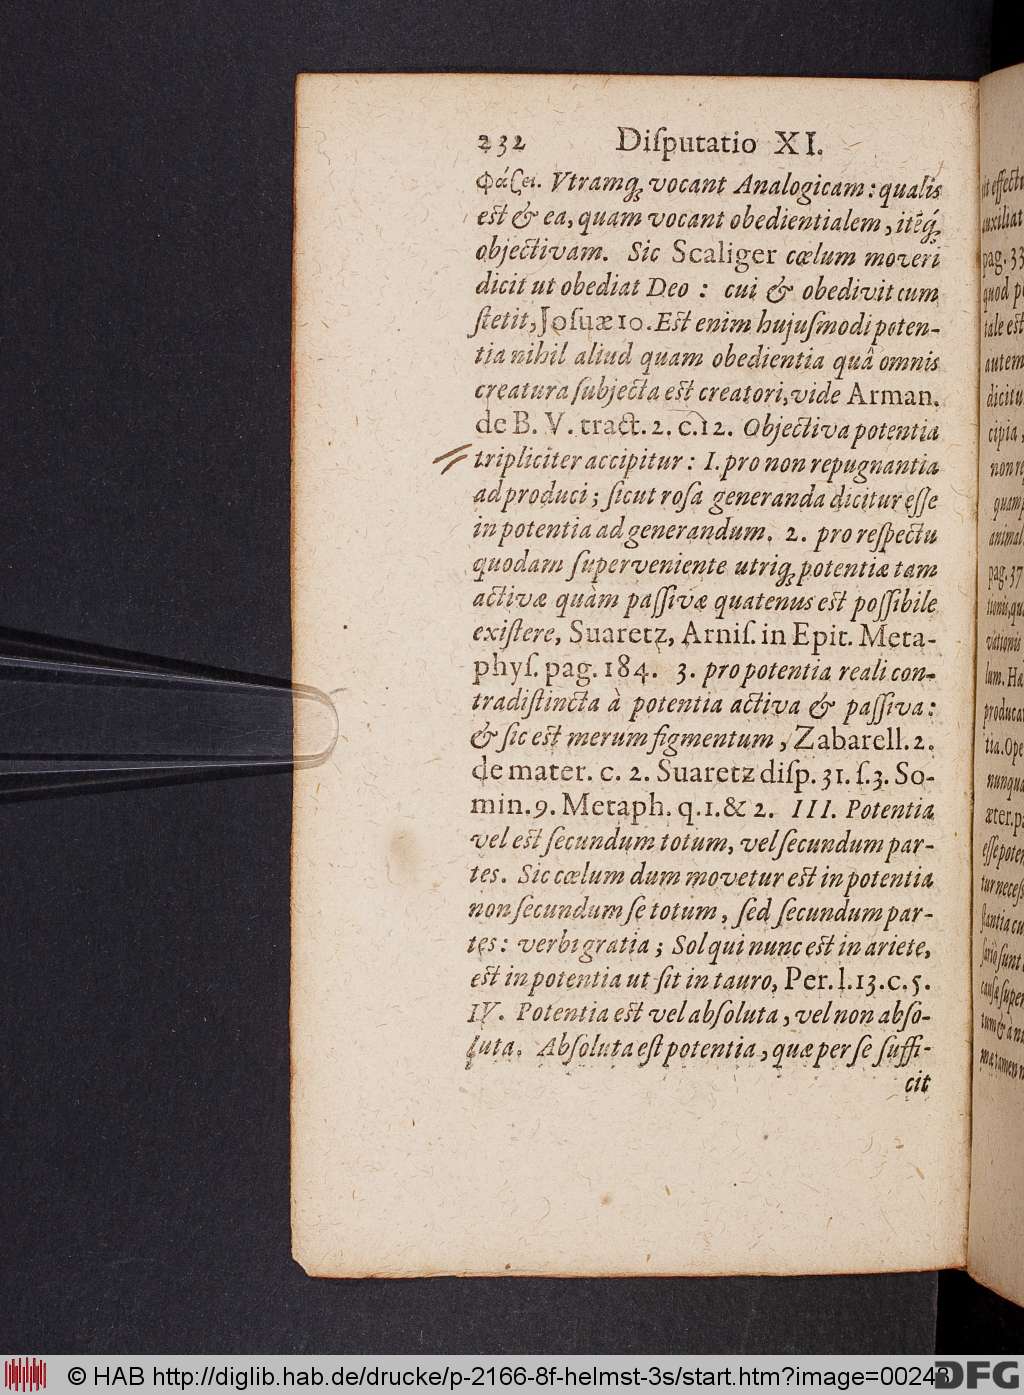 232 Diſputatio XI.
Φάζει. Vtramq́; vocant Analogicam: qualis
est & ea, quam vocant obedientialem, itēq́;
objectivam. Sic Scaliger cœlum moveri
dicit ut obediat Deo: cui & obedivit cum
ſtetit, Joſuæ 10. Est enim hujuſmodi poten-
tia nihil aliud quam obedientia quâ omnis
creatura ſubjecta est creatori, vide Arman.
de B. V. tract. 2. c. 12. Objectiva potentia
tripliciter accipitur: I. pro non repugnantia
ad produci; ſicut roſa generanda dicitur eſſe
in potentia ad generandum. 2. pro reſpectu
quodam ſuperveniente utriq; potentiæ tam
activæ quàm paſſivæ quatenus est poſſibile
exiſtere, Suaretz, Arniſ. in Epit. Meta-
phyſ. pag. 184. 3. pro potentia reali con-
tradiſtincta à potentia activa & paſſiva:
& ſic est merum figmentum, Zabarell. 2.
de mater. c. 2. Suaretz diſp. 31. ſ. 3. So-
min. 9. Metaph. q. 1. & 2. III. Potentia
vel est ſecundum totum, vel ſecundum par-
tes. Sic cœlum dum movetur est in potentia
non ſecundum ſe totum, ſed ſecundum par-
tes: verbi gratia; Sol qui nunc est in ariete,
est in potentia ut ſit in tauro, Per. l. 13. c. 5.
IV. Potentia est vel abſoluta, vel non abſo-
luta. Abſoluta eſt potentia, quæ per ſe ſuffi-
cit
pag. 33
quod
autem
dicitu
cipia,
non
animal
pag. 37
lum. Ha
producat
tia. Ope
nunqua
© HAB http://diglib.hab.de/drucke/p-2166-8f-helmst-3s/start.htm?image=00248
DFG